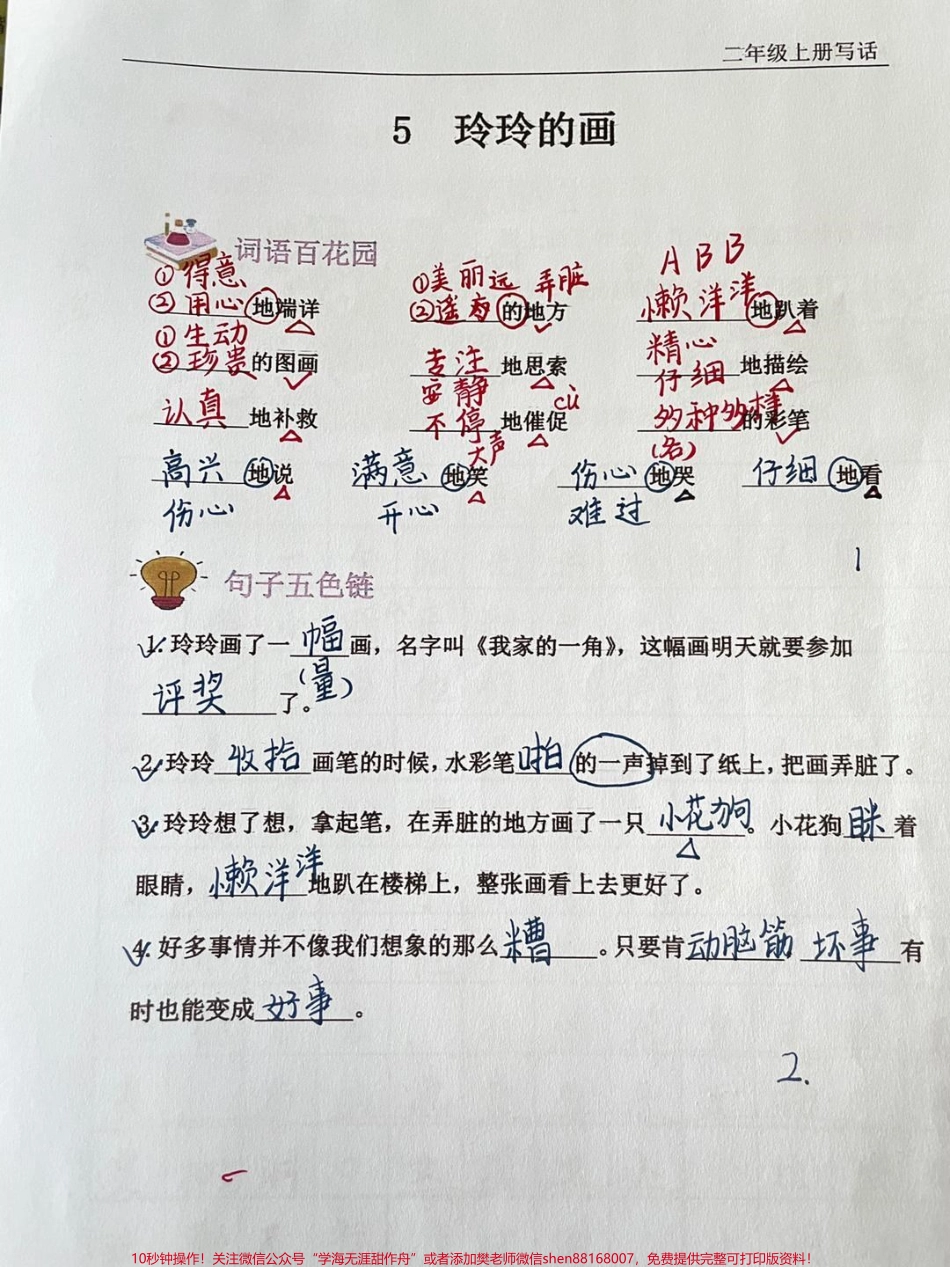 二年级上册写话
5 玲玲的画
词语百花园
①得意 ①美丽 遥远 弄脏 ABB
②用心地端详 ②遥远的地方 懒洋洋地趴着
①生动 精心
②珍贵的图画 专注地思索 仔细地描绘
安静 cù
认真地补救 不停地催促 多种多样的彩笔
大声 (各)
高兴地说 满意地笑 伤心地哭 仔细地看
伤心 开心 难过
1
句子五色链
1. 玲玲画了一幅画，名字叫《我家的一角》，这幅画明天就要参加
(量)
评奖了。
2. 玲玲收拾画笔的时候，水彩笔啪的一声掉到了纸上，把画弄脏了。
3. 玲玲想了想，拿起笔，在弄脏的地方画了一只小花狗。小花狗眯着
眼睛，懒洋洋地趴在楼梯上，整张画看上去更好了。
4. 好多事情并不像我们想象的那么糟。只要肯动脑筋 坏事有
时也能变成好事。
2.
10秒钟操作！关注微信公众号“学海无涯甜作舟”或者添加樊老师微信shen88168007，免费提供完整可打印版资料！